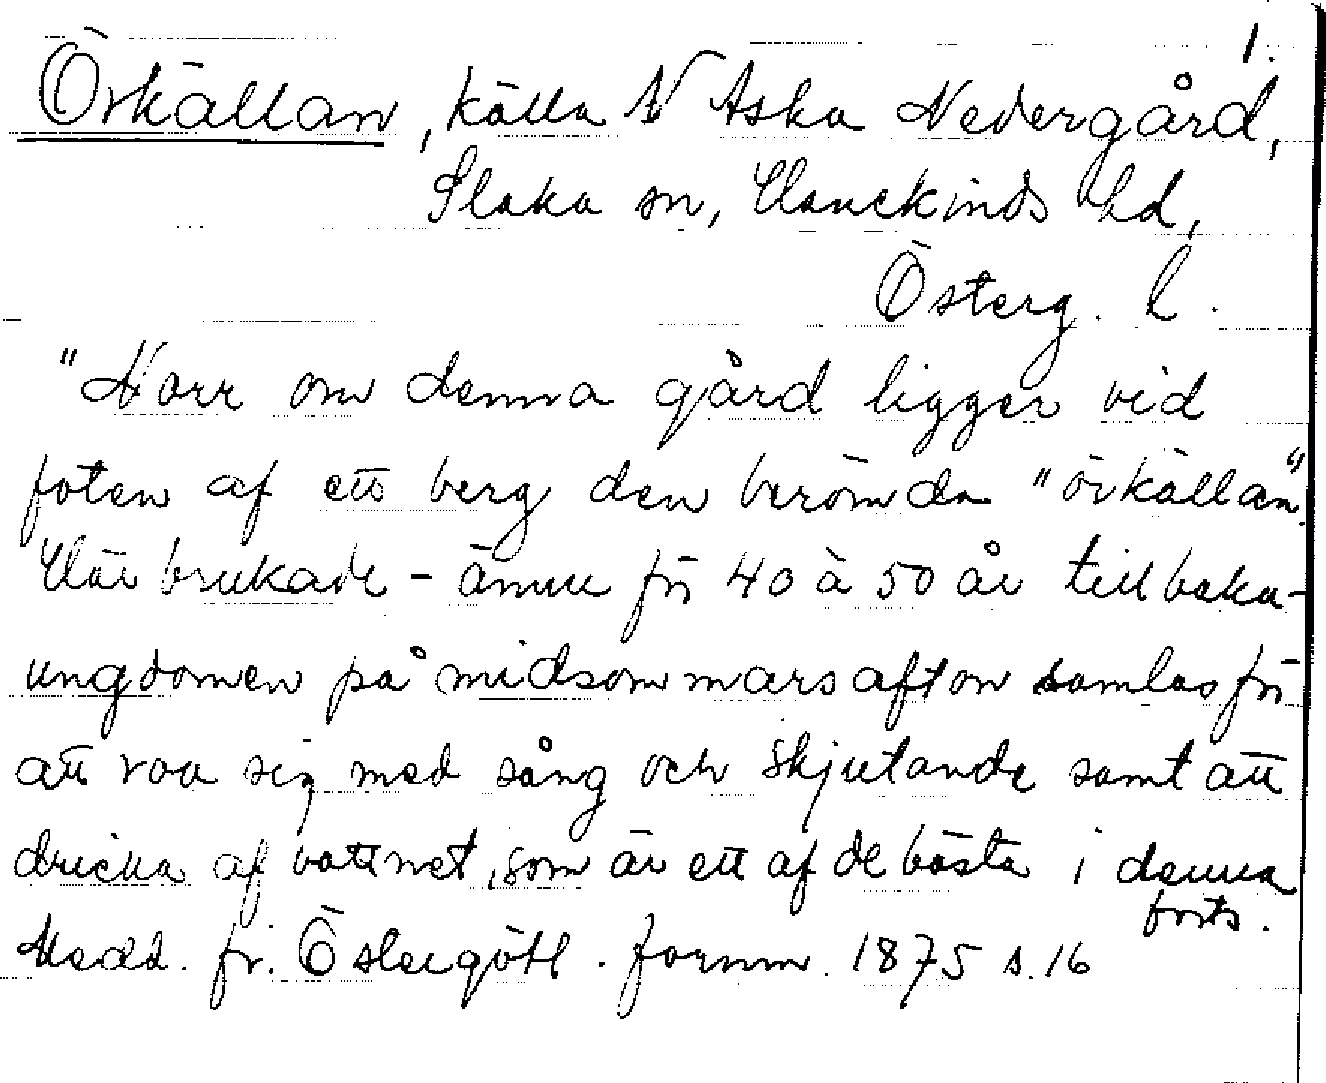 1.
Örkällan, källa N Aska Nedergård,
Slaka sn, Hanekinds hd,
Österg. l.
"Norr om denna gård ligger vid
foten af ett berg den berömda "örkällan".
Här brukade - ännu för 40 à 50 år tillbaka -
ungdomen på midsommarsafton samlas för
att roa sig med sång och skjutande samt att
dricka af vattnet, som är ett af de bästa i denna
forts.
Medd. fr. Östergötl. fornm. 1875 s. 16